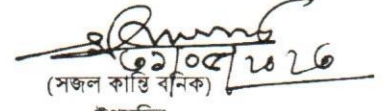 ৩১/০৫/২০২৬
(সজল কান্তি বনিক)